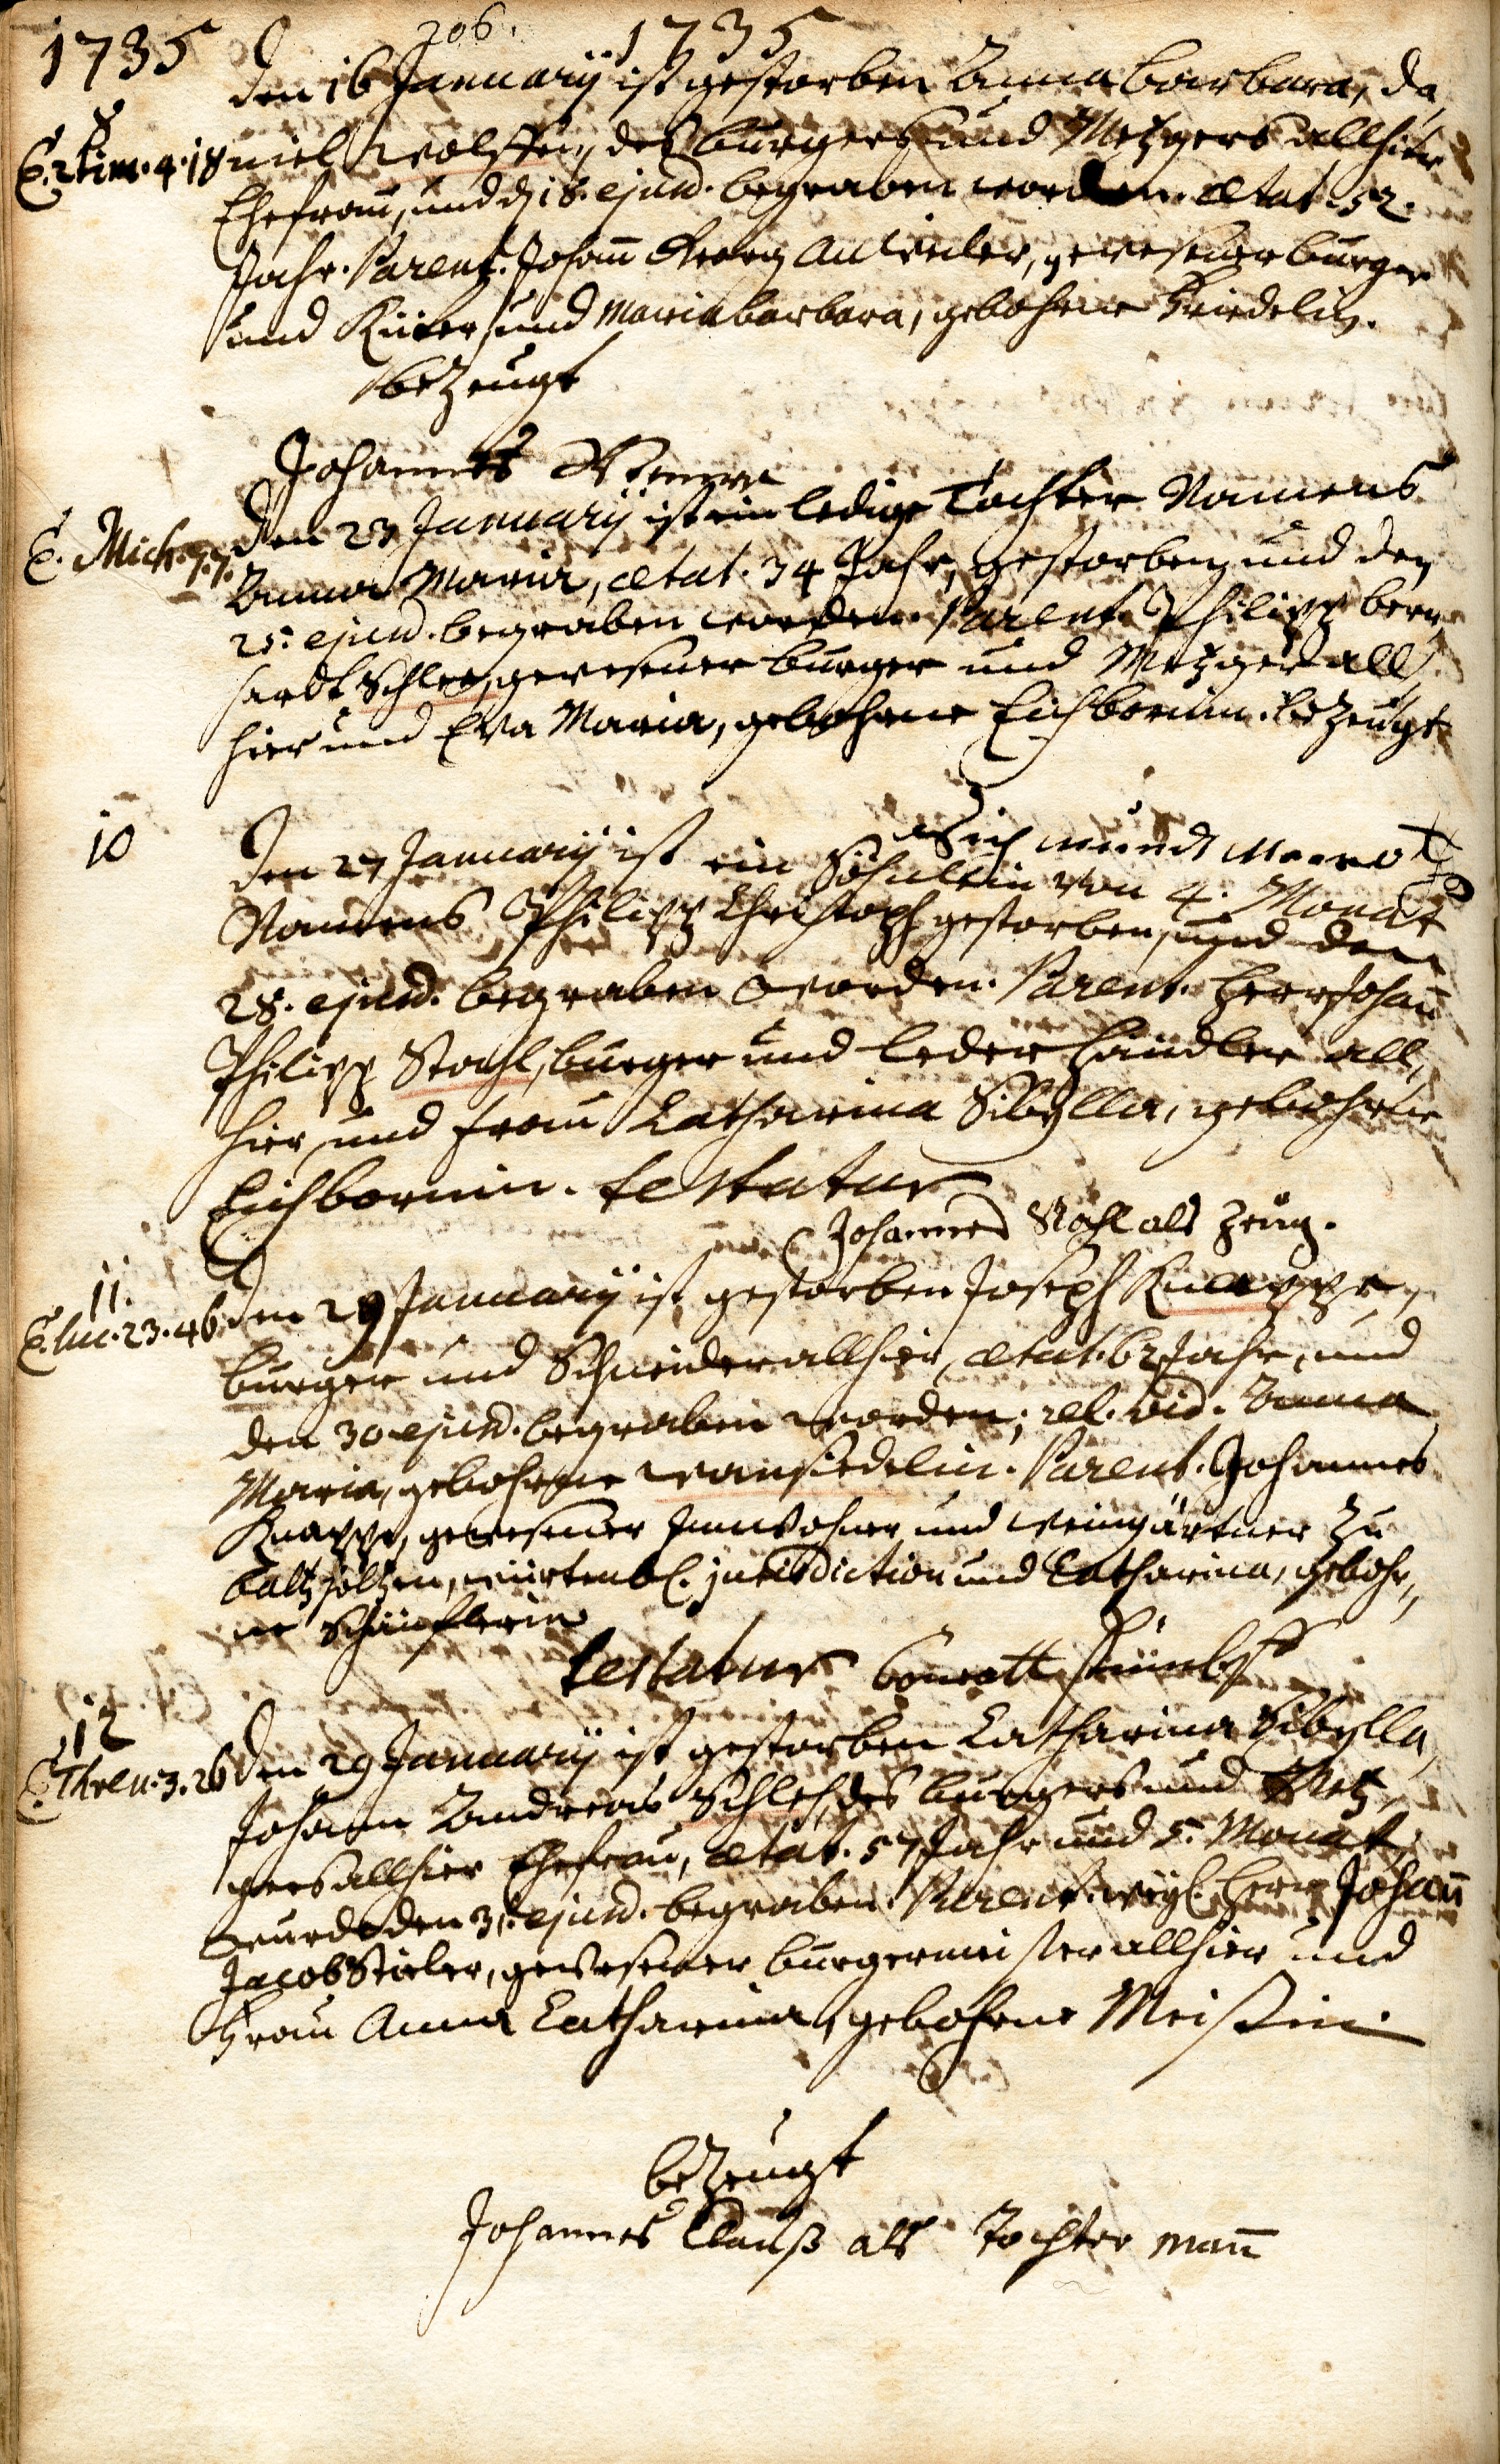 1735
206.
1735
8
E. 2 Tim. 4. 18
Den 16 Januarij ist gestorben Anna barbara, Da,
niel Wolffen, des burgers und Metzgers allhier
Ehefrau, und d 18. ejusd. begraben worden. ætat. 52.
Jahr. Parent. Johañ Georg Anweiler, gewesener burger
und Küfer, und Maria barbara, gebohrne Friedelin.
bezeugt
Johannes
E. Mich. 7. 7.
Den 23 Januarij ist ein ledige Tochter Namens
Anna Maria, ætat. 34 Jahr, gestorben und den
25. ejusd. begraben worden. Parent. Philipp bern,
hardt Schlee, gewesener burger und Metzger all,
hier und Eva Maria, gebohrne Eichbornin. bezeugt
10
Den 27 Januarij ist ein Söhnlein von 4. Monat
Namens Philipp Christoph gestorben, und den
28. ejusd. begraben worden. Parent. Herr Johañ
Philipp Stahl, burger und lederhändler all,
hier, und Frau Catharina Sibylla, gebohrne
Eichbornin. testatur
Johannes Stahl als Zeug.
11.
E. Luc. 23. 46
Den 29 Januarij ist gestorben Joseph Knappe,
burger und Schneider allhier, ætat. 62 Jahr, und
den 30 ejusd. begraben worden; rel. vid. Anna
Maria, gebohrne Wansiedelin. Parent. Johannes
Knappe, gewesener Innwohner und weingärtner zu
baltzholtzen, würtenb. jurisdiction und Catharina, gebohr,
ne Schäufflerin
testatur Conratt
12
E. Thren. 3. 26
Den 29 Januarij ist gestorben Catharina Sibylla,
Johann Andreas Schleh, des burgers und Metz,
gers allhier Ehefrau, ætat. 57 Jahr und 5. Monat,
wurde den 31. ejusd. begraben. Parent. weyl. Herr Johañ
Jacob Stieler, gewesener burgermeister allhier und
Frau Anna Catharina, gebohrne Meißin.
bezeugt
Johannes Clauß als Tochter mañ